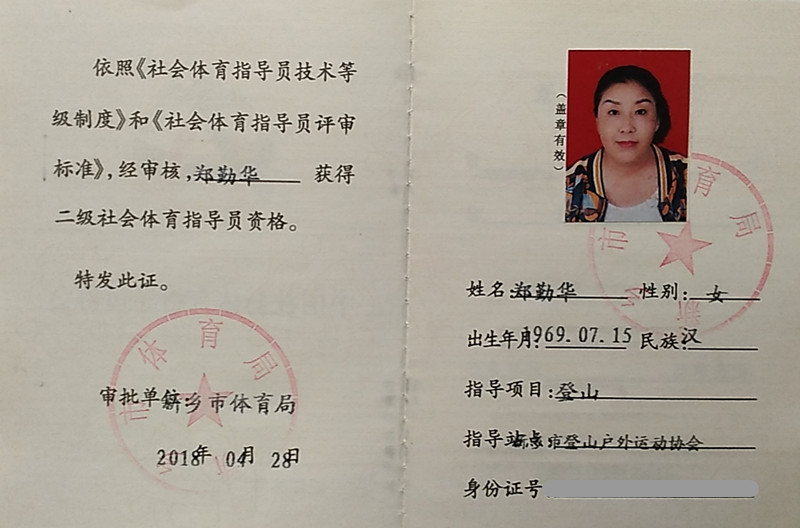 依照《社会体育指导员技术等
级制度》和《社会体育指导员评审
标准》，经审核，郑勤华 获得
二级社会体育指导员资格。
特发此证。
审批单位：新乡市体育局
2018年 04月 28日
市体育局
（盖章有效）
市 育局
姓名：郑勤华 性别：女
出生年月：1969.07.15 民族：汉
指导项目：登山
指导站点：新乡市登山户外运动协会
身份证号